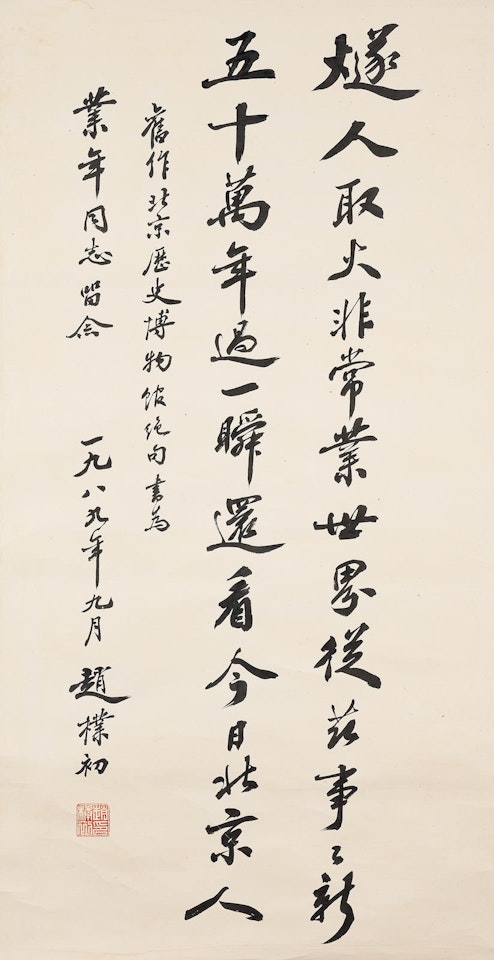 燧人取火非常業世界從兹事〻新
五十萬年過一瞬還看今日北京人
舊作北京歷史博物館絕句書為
業年同志留念
一九八九年九月 趙樸初